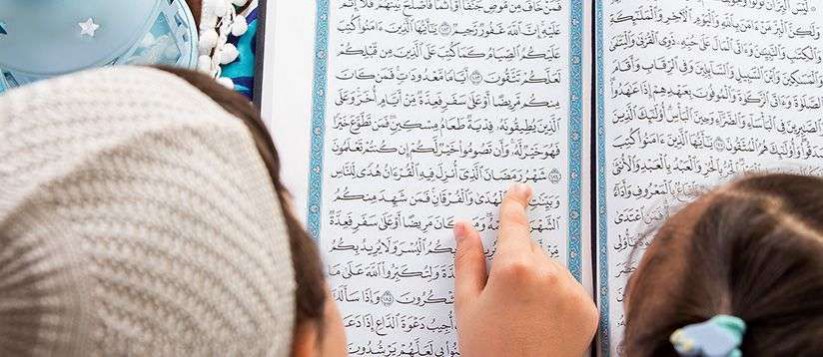 لَّيْسَ ٱلْبِرَّ أَن تُوَلُّوا۟
وَلَٰكِنَّ ٱلْبِرَّ مَنْ ءَامَنَ بِٱللَّهِ وَٱلْيَوْمِ ٱلْءَاخِرِ وَٱلْمَلَٰٓئِكَةِ
وَٱلْكِتَٰبِ وَٱلنَّبِيِّـۧنَ وَءَاتَى ٱلْمَالَ عَلَىٰ حُبِّهِۦ ذَوِى ٱلْقُرْبَىٰ وَٱلْيَتَٰمَىٰ
وَٱلْمَسَٰكِينَ وَٱبْنَ ٱلسَّبِيلِ وَٱلسَّآئِلِينَ وَفِى ٱلرِّقَابِ وَأَقَامَ
ٱلصَّلَوٰةَ وَءَاتَى ٱلزَّكَوٰةَ وَٱلْمُوفُونَ بِعَهْدِهِمْ إِذَا عَٰهَدُوا۟
وَٱلصَّٰبِرِينَ فِى ٱلْبَأْسَآءِ وَٱلضَّرَّآءِ وَحِينَ ٱلْبَأْسِ أُو۟لَٰٓئِكَ ٱلَّذِينَ
هُمُ ٱلْمُتَّقُونَ ١٧٧ يَٰٓأَيُّهَا ٱلَّذِينَ ءَامَنُوا۟ كُتِبَ
وَٱلْعَبْدُ بِٱلْعَبْدِ وَٱلْأُنثَىٰ
بِٱلْمَعْرُوفِ وَأَدَآءٌ
فَمَنِ ٱعْتَدَىٰ
يَٰٓأُو۟لِى
فَمَنْ خَافَ مِن مُّوصٍ جَنَفًا أَوْ إِثْمًا فَأَصْلَحَ بَيْنَهُمْ فَلَآ إِثْمَ
عَلَيْهِ إِنَّ ٱللَّهَ غَفُورٌ رَّحِيمٌ ١٨٢ يَٰٓأَيُّهَا ٱلَّذِينَ ءَامَنُوا۟ كُتِبَ
عَلَيْكُمُ ٱلصِّيَامُ كَمَا كُتِبَ عَلَى ٱلَّذِينَ مِن قَبْلِكُمْ
لَعَلَّكُمْ تَتَّقُونَ ١٨٣ أَيَّامًا مَّعْدُودَٰتٍ فَمَن كَانَ
مِنكُم مَّرِيضًا أَوْ عَلَىٰ سَفَرٍ فَعِدَّةٌ مِّنْ أَيَّامٍ أُخَرَ وَعَلَى
ٱلَّذِينَ يُطِيقُونَهُۥ فِدْيَةٌ طَعَامُ مِسْكِينٍ فَمَن تَطَوَّعَ خَيْرًا
فَهُوَ خَيْرٌ لَّهُۥ وَأَن تَصُومُوا۟ خَيْرٌ لَّكُمْ إِن كُنتُمْ تَعْلَمُونَ
١٨٤ شَهْرُ رَمَضَانَ ٱلَّذِىٓ أُنزِلَ فِيهِ ٱلْقُرْءَانُ هُدًى لِّلنَّاسِ
وَبَيِّنَٰتٍ ٱلْهُدَىٰ وَٱلْفُرْقَانِ فَمَن شَهِدَ مِنكُمُ
ٱلشَّهْرَ كَانَ مَرِيضًا أَوْ عَلَىٰ سَفَرٍ فَعِدَّةٌ
بِكُمُ ٱلْيُسْرَ وَلَا يُرِيدُ بِكُمُ
وَلِتُكَبِّرُوا۟ ٱللَّهَ عَلَىٰ مَا
تَشْكُرُونَ ١٨٥ وَإِذَا سَأَلَكَ
أُجِيبُ دَعْوَةَ ٱلدَّاعِ إِذَا دَعَانِ
بِى لَعَلَّهُمْ يَرْشُدُونَ